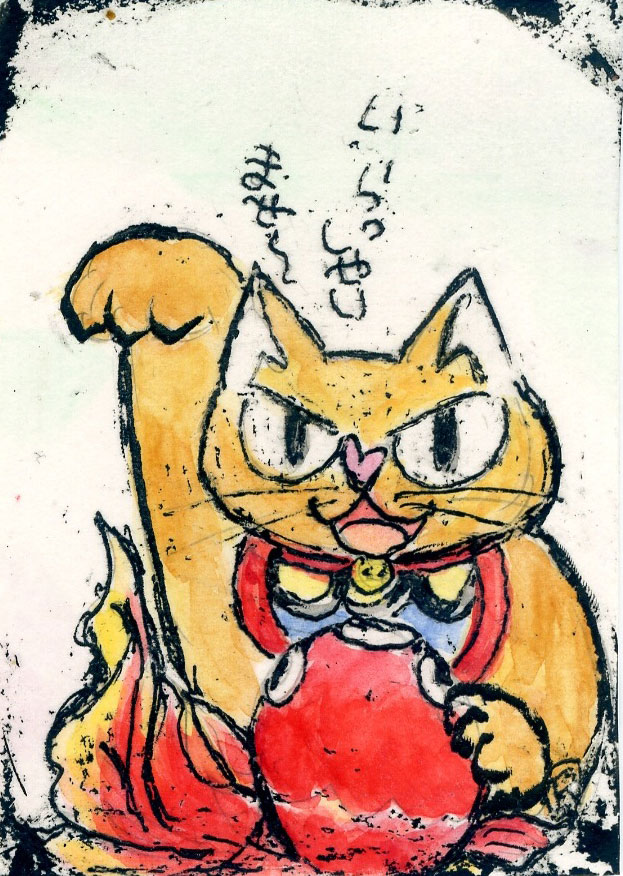 いらっしゃい
ませ〜